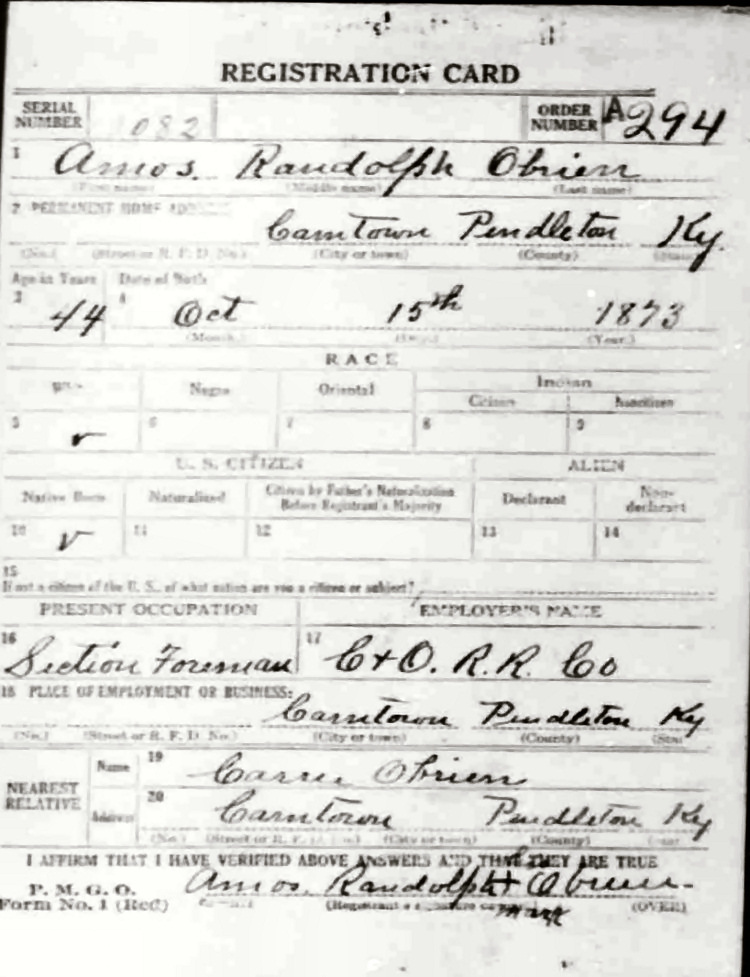 REGISTRATION CARD
SERIAL NUMBER 1082 ORDER NUMBER A294
1 Amos. Randolph Obrien
(First name) (Middle name) (Last name)
2 PERMANENT HOME ADDRESS
Carntown Pendleton Ky.
(No.) (Street or R. F. D. No.) (City or town) (County) (State)
Age in Years Date of Birth
3 44 4 Oct 15th 1873
(Month.) (Day.) (Year.)
RACE
Negro Oriental Indian
Citizen Noncitizen
5 v 6 7 8 9
U. S. CITIZEN ALIEN
Native Born Naturalized Citizen by Father's Naturalization Before Registrant's Majority Declarant Non-declarant
10 v 11 12 13 14
15
If not a citizen of the U. S., of what nation are you a citizen or subject?
PRESENT OCCUPATION EMPLOYER'S NAME
16 Section Foreman 17 C+O. R.R. Co
18 PLACE OF EMPLOYMENT OR BUSINESS:
Carntown Pendleton Ky
(No.) (Street or R. F. D. No.) (City or town) (County) (State)
NEAREST RELATIVE Name 19 Carrie Obrien
Address 20 Carntown Pendleton Ky
(No.) (Street or R. F. D. No.) (City or town) (County) (State)
I AFFIRM THAT I HAVE VERIFIED ABOVE ANSWERS AND THAT THEY ARE TRUE
P. M. G. O.
Form No. 1 (Red) Amos. Randolph + Obrien
(Registrant's signature or mark) (OVER)
mark